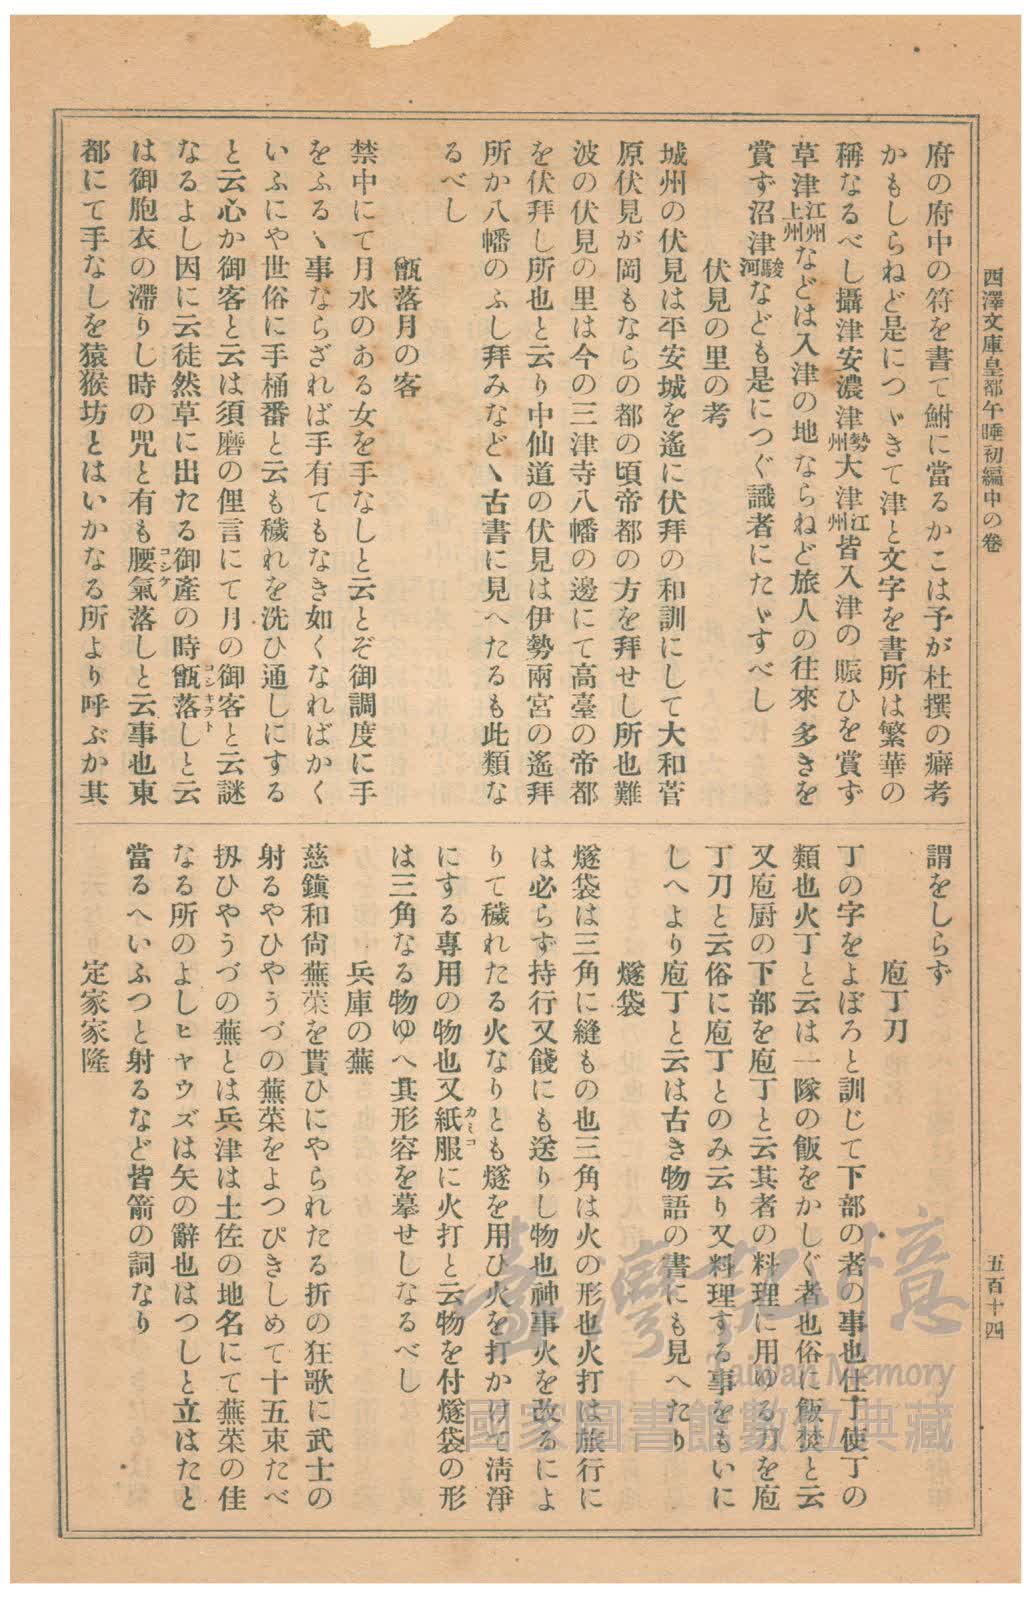 西澤文庫皇都午睡初編中の卷
五百十四
府の府中の符を書て鮒に當るかこは予が杜撰の癖考
かもしらねど是につゞきて津と文字を書所は繁華の
稱なるべし攝津安濃津勢州大津江州皆入津の賑ひを賞ず
草津江州上州などは入津の地ならねど旅人の往來多きを
賞ず沼津駿河なども是につぐ識者にたゞすべし
伏見の里の考
城州の伏見は平安城を遙に伏拜の和訓にして大和菅
原伏見が岡もならの都の頃帝都の方を拜せし所也難
波の伏見の里は今の三津寺八幡の邊にて高臺の帝都
を伏拜し所也と云り中仙道の伏見は伊勢兩宮の遙拜
所か八幡のふし拜みなどゝ古書に見へたるも此類な
るべし
甑落月の客
禁中にて月水のある女を手なしと云とぞ御調度に手
をふるゝ事ならざれば手有てもなき如くなればかく
いふにや世俗に手桶番と云も穢れを洗ひ通しにする
と云心か御客と云は須磨の俚言にて月の御客と云謎
なるよし因に云徒然草に出たる御產の時甑落しと云コシキヲト
は御胞衣の滯りし時の咒と有も腰氣落しと云事也東コシケ
都にて手なしを猿猴坊とはいかなる所より呼ぶか其
謂をしらず
庖丁刀
丁の字をよぼろと訓じて下部の者の事也仕丁使丁の
類也火丁と云は一隊の飯をかしぐ者也俗に飯焚と云
又庖厨の下部を庖丁と云其者の料理に用ゆる刀を庖
丁刀と云俗に庖丁とのみ云り又料理する事をもいに
しへより庖丁と云は古き物語の書にも見へたり
燧袋
燧袋は三角に縫もの也三角は火の形也火打は旅行に
は必らず持行又餞にも送りし物也神事火を改るによ
りて穢れたる火なりとも燧を用ひ火を打かけて淸淨
にする專用の物也又紙服に火打と云物を付燧袋の形カミコ
は三角なる物ゆへ其形容を摹せしなるべし
兵庫の蕪
慈鎭和尙蕪菜を貰ひにやられたる折の狂歌に武士の
射るやひやうづの蕪菜をよつぴきしめて十五束たべ
扨ひやうづの蕪とは兵津は土佐の地名にて蕪菜の佳
なる所のよしヒヤウズは矢の辭也はつしと立はたと
當るへいふつと射るなど皆箭の詞なり
定家家隆
臺灣記憶
Taiwan Memory
國家圖書館數位典藏